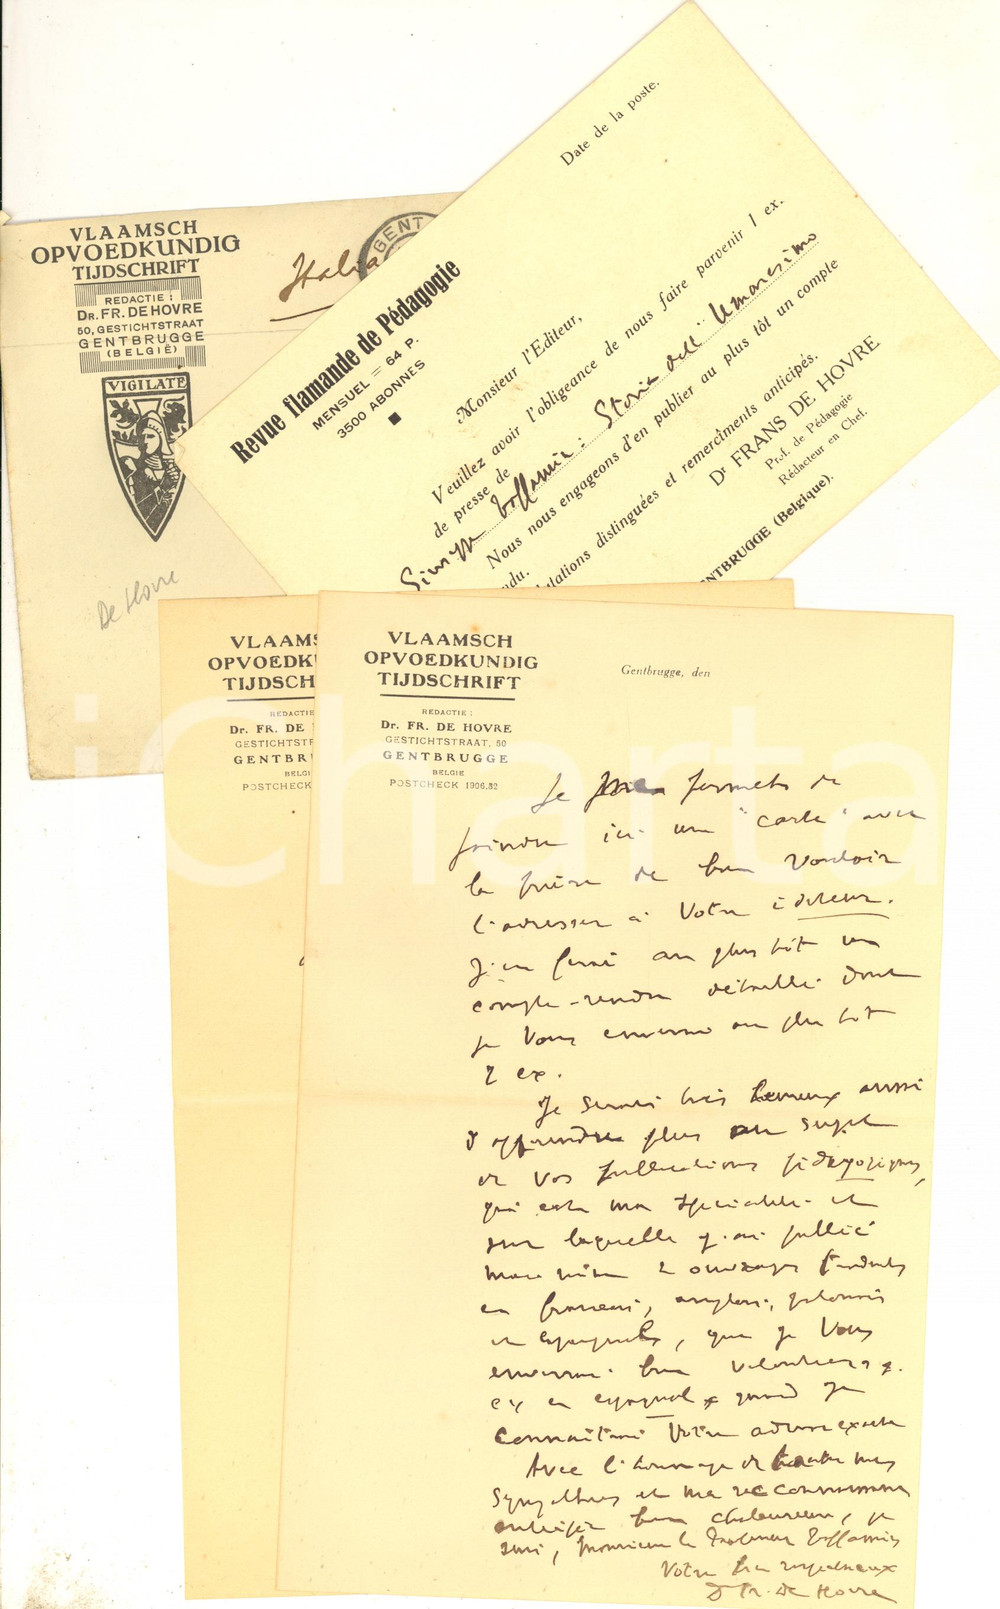 VLAAMSCH
OPVOEDKUNDIG
TIJDSCHRIFT
REDACTIE :
DR. FR. DE HOVRE
50, GESTICHTSTRAAT
GENTBRUGGE
(BELGIË)
VIGILATE
Italia
GENT
De Hovre
Date de la poste.
Revue flamande de Pédagogie
MENSUEL = 64 P.
3500 ABONNES
Monsieur l'Editeur,
Veuillez avoir l'obligeance de nous faire parvenir 1 ex.
de presse de
Giuseppe Toffanin : Storia dell' Umanesimo
Nous nous engageons d'en publier au plus tôt un compte
ndu.
utations distinguées et remercîments anticipés.
Dr FRANS DE HOVRE
Prof. de Pédagogie
Rédacteur en Chef.
NTBRUGGE (Belgique).
VLAAMS
OPVOEDK
TIJDSCH
REDACTIE
Dr. FR. DE
GESTICHTSTR
GENTBR
BELGI
POSTCHECK
VLAAMSCH
OPVOEDKUNDIG
TIJDSCHRIFT
REDACTIE :
Dr. FR. DE HOVRE
GESTICHTSTRAAT, 50
GENTBRUGGE
BELGIE
POSTCHECK 1906,82
Gentbrugge, den
Je permets de
joindre ici une "carte" avec
la prière de bien vouloir
l'adresser à Votre éditeur.
J'en ferai au plus tôt un
compte-rendu détaillé dont
je Vous enverrai au plus tôt
2 ex.
Je serais très heureux aussi
d'apprendre plus au sujet
de vos publications pédagogiques,
qui est ma spécialité et
sur laquelle j'ai publié
moi même 2 ouvrages traduits
en français, anglais, polonais
et espagnols, que je Vous
enverrai bien volontiers
ex en espagnol quand je
connaîtrai Votre adresse exacte
Avec l'hommage de toutes mes
sympathies et ma reconnaissance
bien chaleureuse, je
suis, Monsieur le Professeur Toffanin
Votre bien respectueux
Dr Fr. De Hovre
iCharta